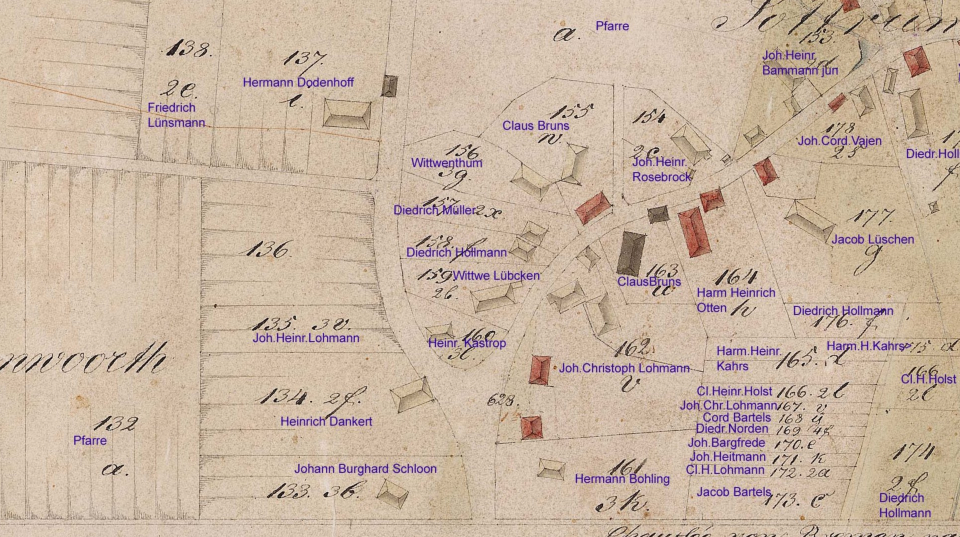 Sottrum
a.
Pfarre
138.
2e.
Friedrich
Lünsmann
137.
Hermann Dodenhoff
i.
153.
Joh.Heinr.
Bammann jun
155
Claus Bruns
w.
154
2c.
Joh.Heinr.
Rosebrock
178
Joh.Cord.Vajen
2s
Diedr.Holl
f
156
Wittwenthum
3g.
157.
Diedrich Müller
2x
158. f
Diedrich Hollmann
159.
Wittwe Lübcken
2b.
160
Heinr. Kastrop
3c
163
ClausBruns
w
164
Harm Heinrich
Otten
h
177.
Jacob Lüschen
g
Diedrich Hollmann
176. f
Harm.H.Kahrs
175 d
136.
135. 3v.
Joh.Heinr.Lohmann
134. 2f.
Heinrich Dankert
Johann Burghard Schloon
133. 3b.
nwoorth
132
Pfarre
a.
162.
Joh.Christoph Lohmann
v
628.
161
Hermann Bohling
3k.
Harm.Heinr.
Kahrs
165. d
Cl.Heinr.Holst 166. 2l
Joh.Chr.Lohmann 167. v
Cord Bartels 168 ü
Diedr.Norden 169 4f
Joh.Bargfrede 170. e
Joh.Heitmann 171. k
Cl.H.Lohmann 172. 2a
Jacob Bartels 173. c
166
Cl.H.Holst
2l
174
2f.
Diedrich
Hollmann
Chaussée von Bremen na